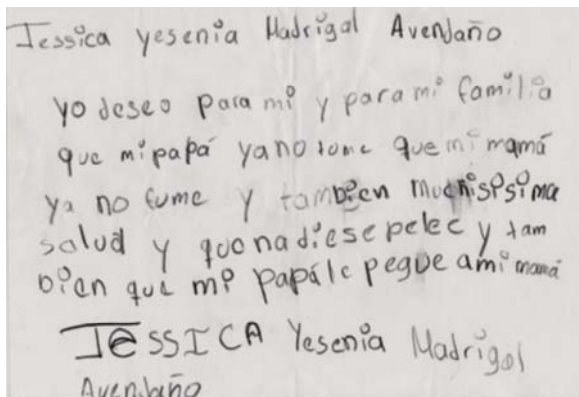 Jessica yesenia Madrigal Avendaño
yo deseo para mi y para mi familia
que mi papá ya no tome que mi mamá
ya no fume y tambien muchisisima
salud y que nadie se pelee y tam
bien que mi papá le pegue a mi mamá
JeSSICA Yesenia Madrigal
Avendaño